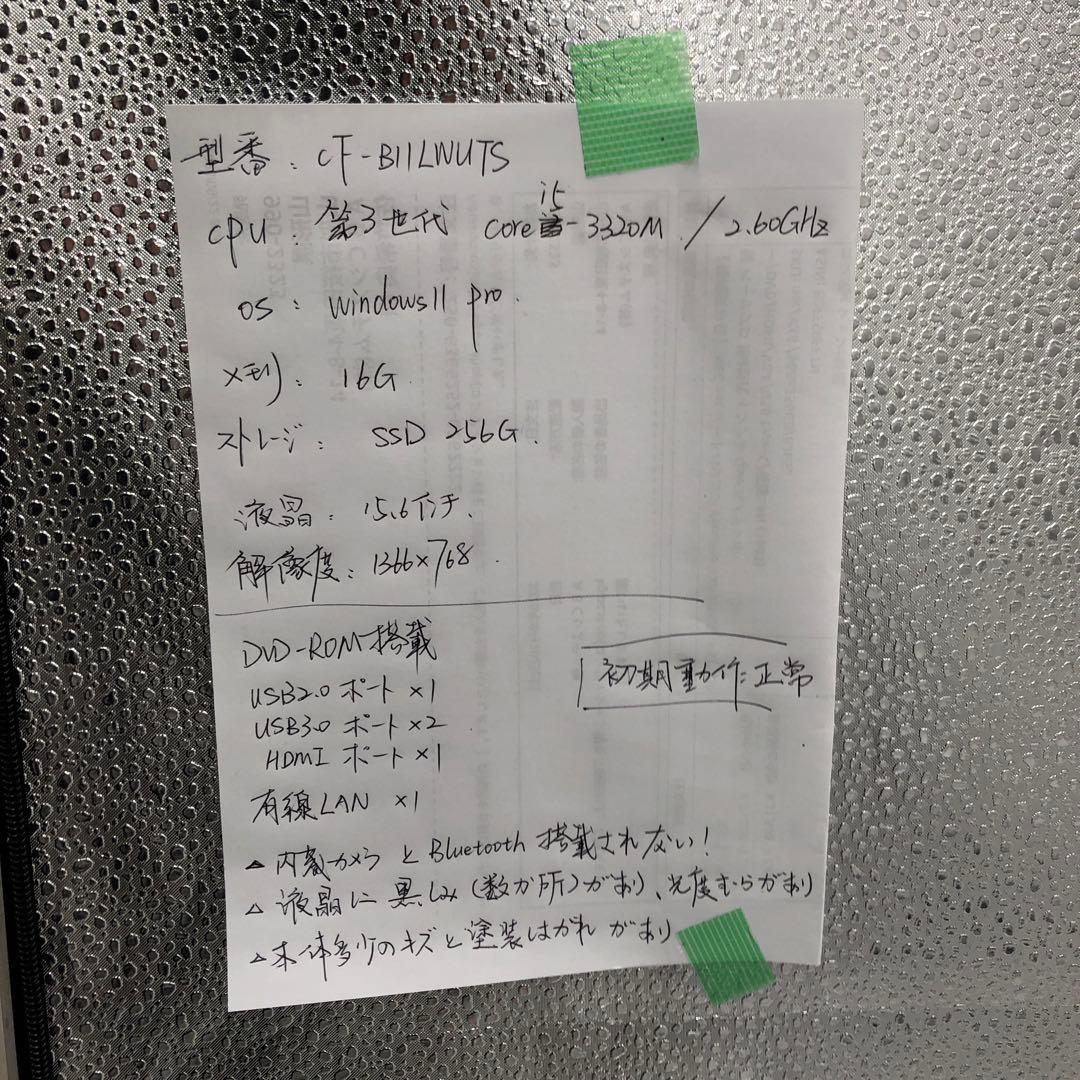 型番: CF-B11LWUTS
CPU: 第3世代 core i5-3320M / 2.60GHz
OS: windows11 pro.
メモリ: 16G
ストレージ: SSD 256G.
液晶: 15.6インチ.
解像度: 1366×768.
DVD-ROM搭載
USB2.0 ポート ×1
USB3.0 ポート ×2
HDMI ポート ×1
有線LAN ×1
初期動作:正常
△ 内蔵カメラとBluetooth搭載されない!
△ 液晶に黒しみ(数か所)があり、光度むらがあり
△ 本体多少のキズと塗装はがれがあり